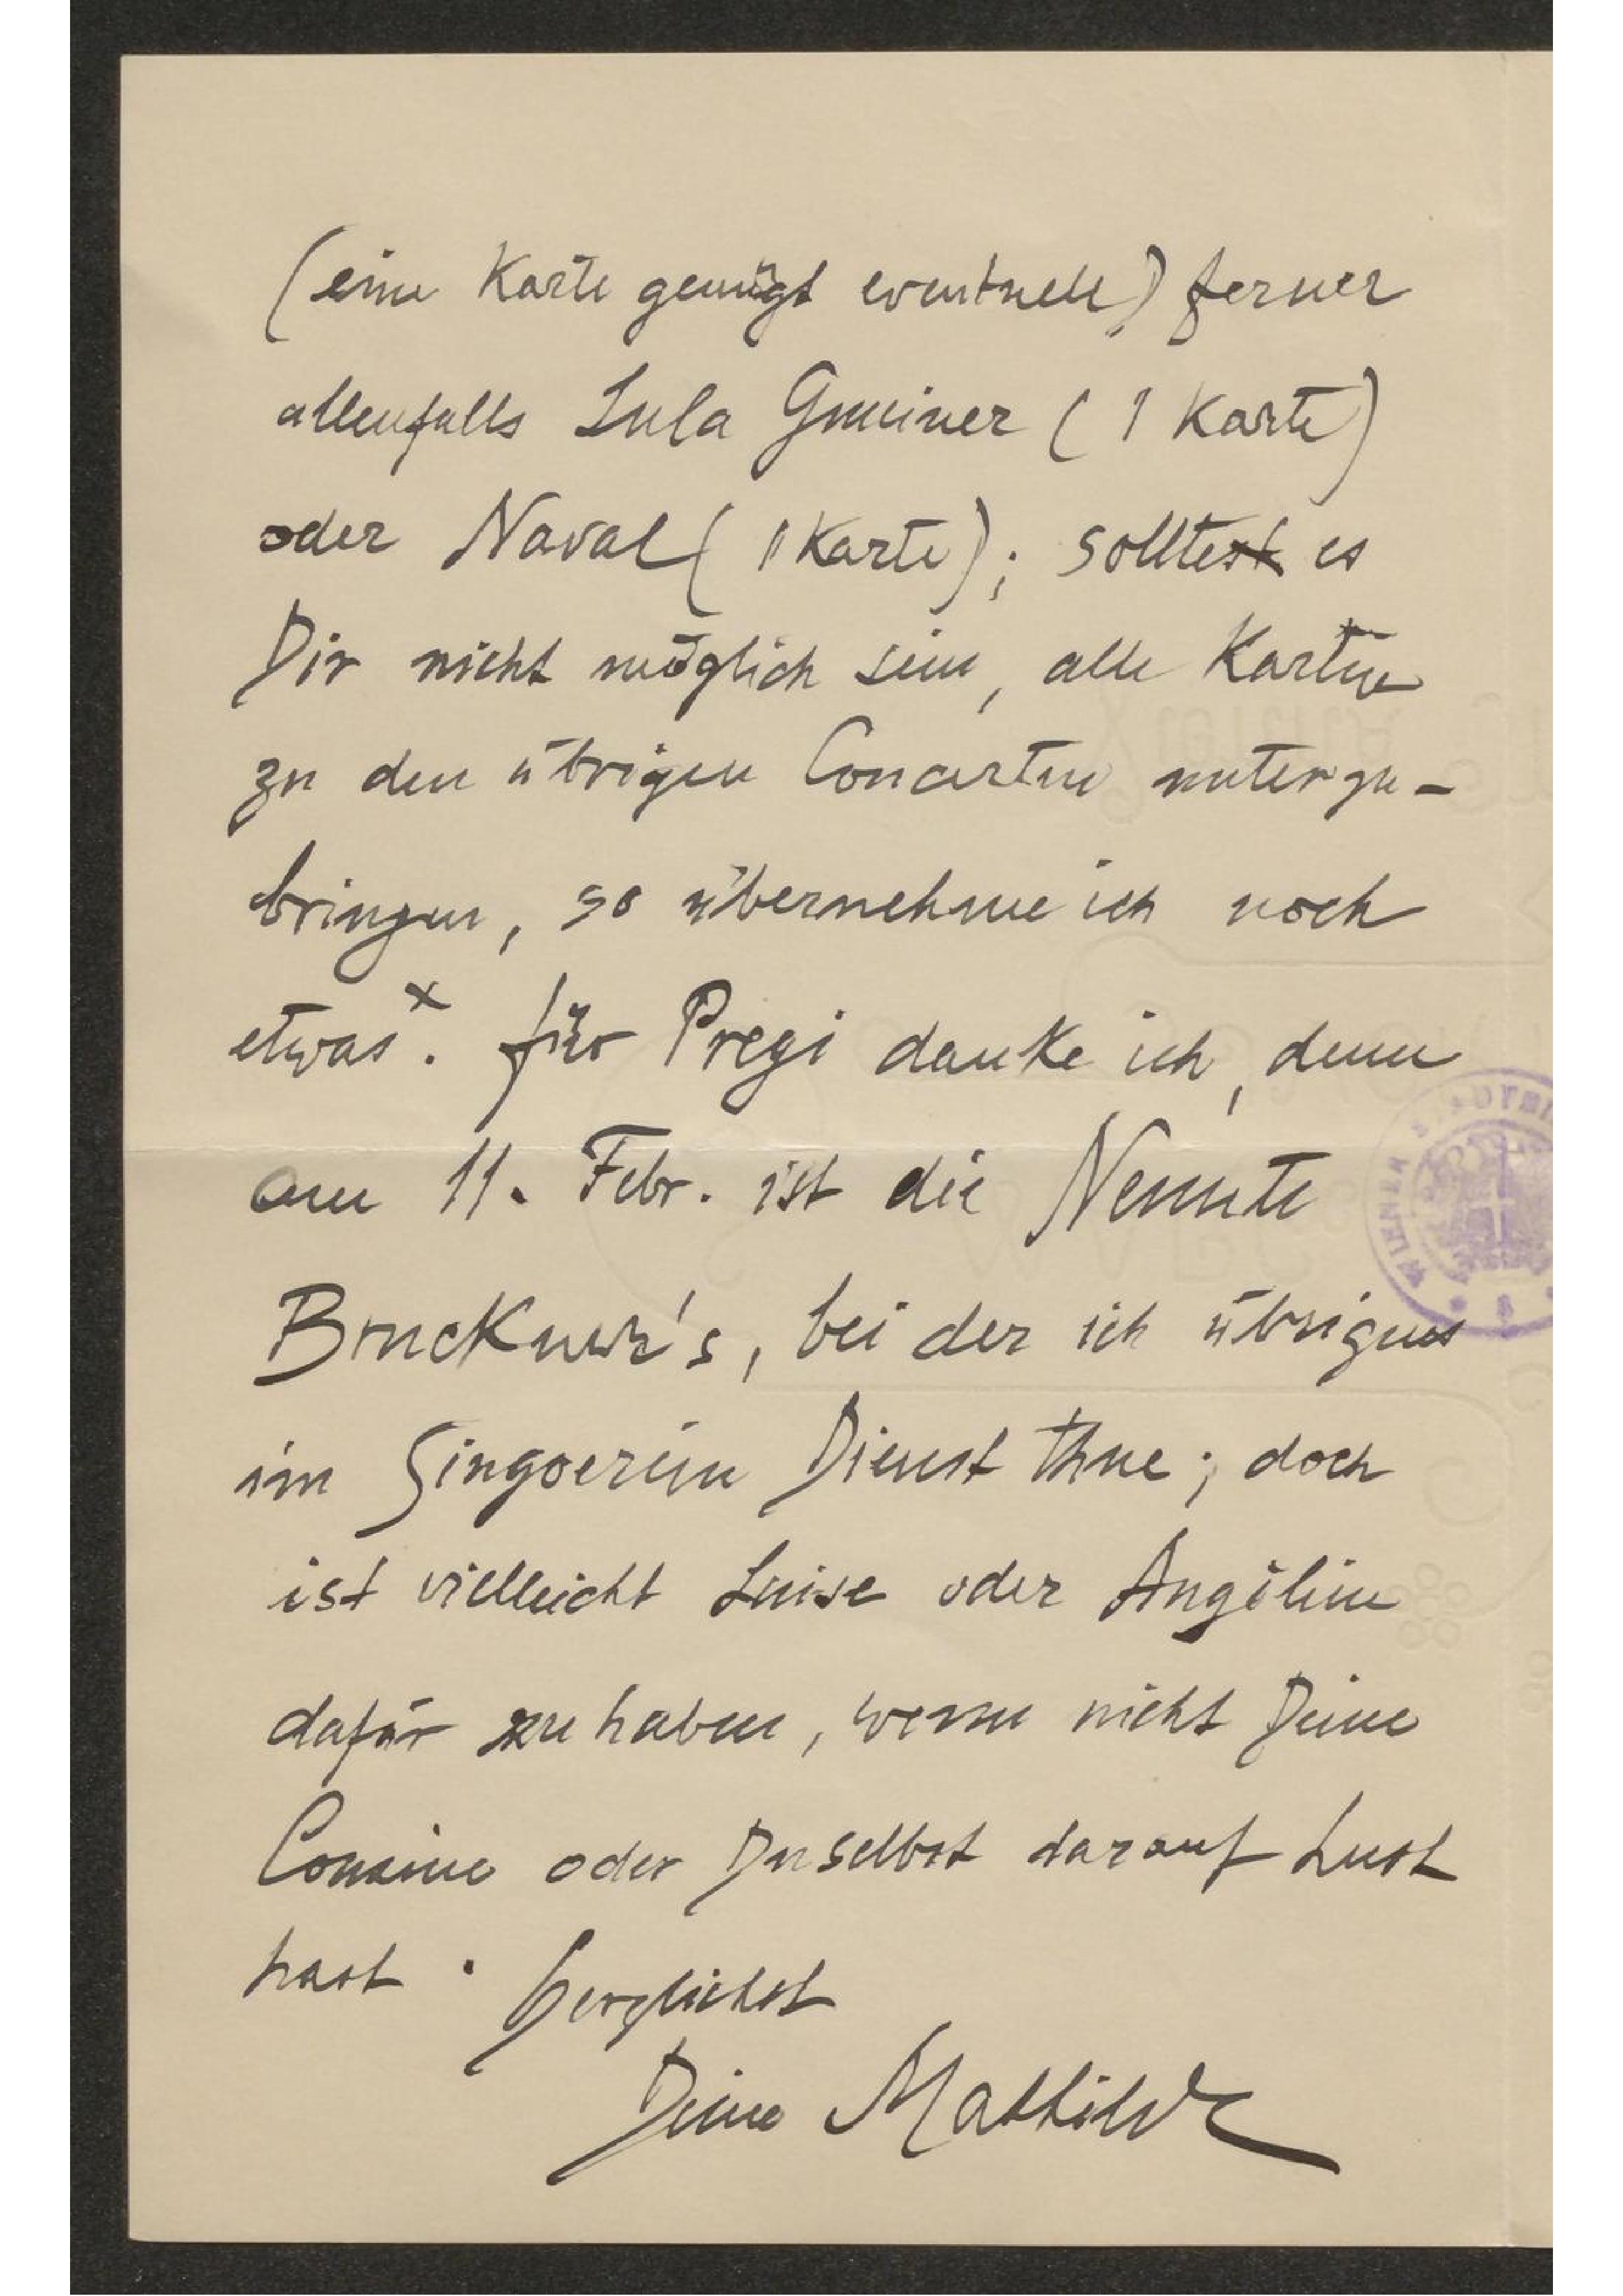 (eine Karte genügt eventuell) ferner
allenfalls Lula Gmeiner (1 Karte)
oder Naval (1 Karte); solltest es
Dir nicht möglich sein, alle Karten
zu den übrigen Concerten unterzu-
bringen, so übernehme ich noch
etwas x. für Pregi danke ich, denn
am 11. Febr. ist die Neunte
Bruckner's, bei der ich übrigens
im Singverein Dienst thue; doch
ist vielleicht Luise oder Angéline
dafür zu haben, wenn nicht Deine
Cousine oder Du selbst darauf Lust
hast. Herzlichst
Deine Mathilde
WIENER STADT